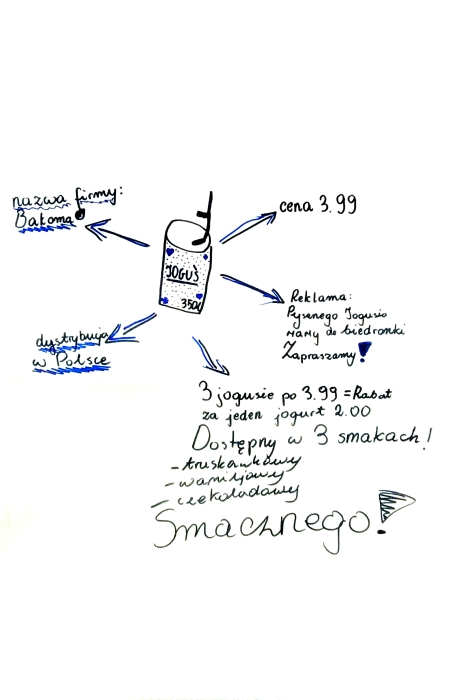 nazwa firmy:
Bakoma
cena 3.99
JOGUŚ
Reklama:
Pysznego Jogusia
mamy do biedronki
Zapraszamy!
dystrybuja
w Polsce
3 jogusie po 3.99 = Rabat
za jeden jogurt 2.00
Dostępny w 3 smakach!
- truskawkowy
- waniljowy
- czekoladowy
Smacznego!